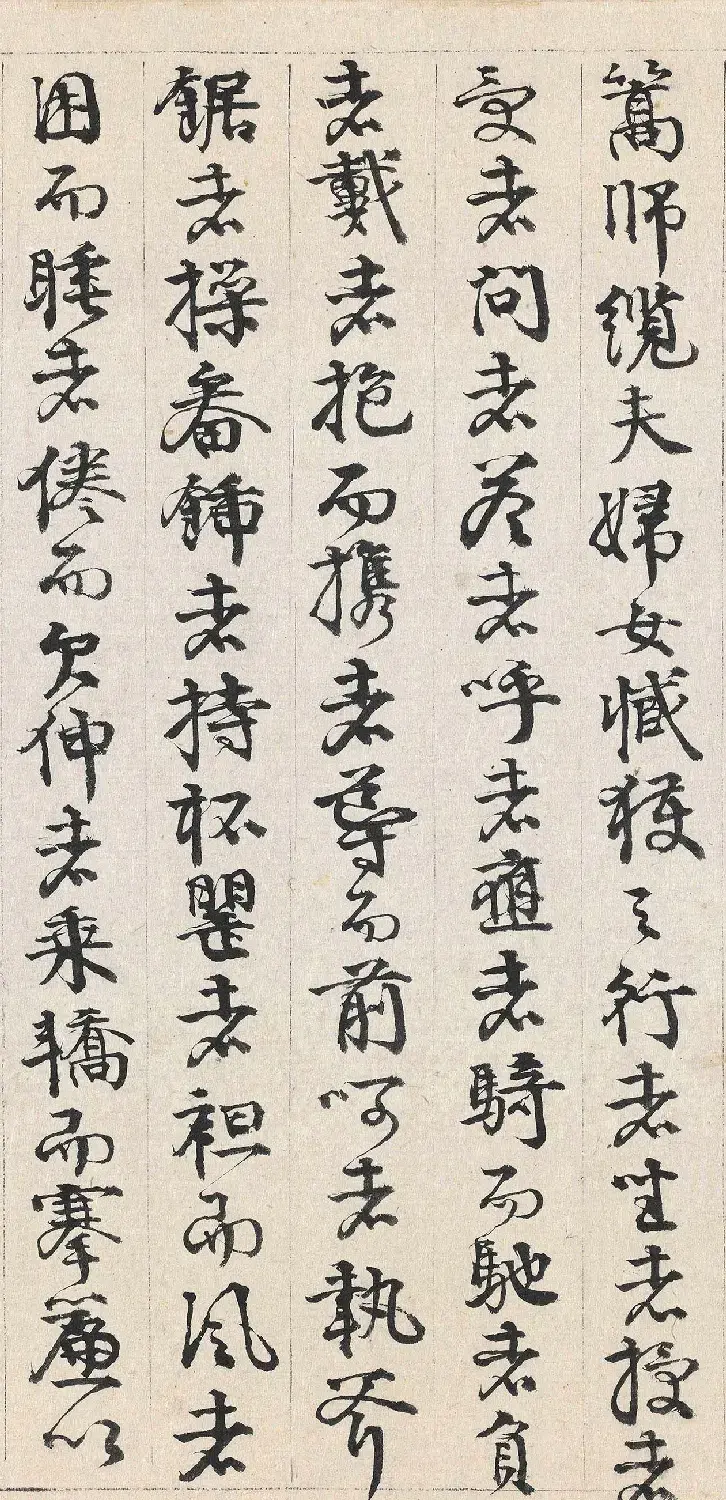 篙師纜夫婦女臧獲之行者坐者授者
受者問者答者呼者應者騎而馳者負
者戴者抱而攜者導而前呵者執斧
鋸者操畚鍤者持杯罌者袒而風者
困而睡者倦而欠伸者乘轎而搴簾以